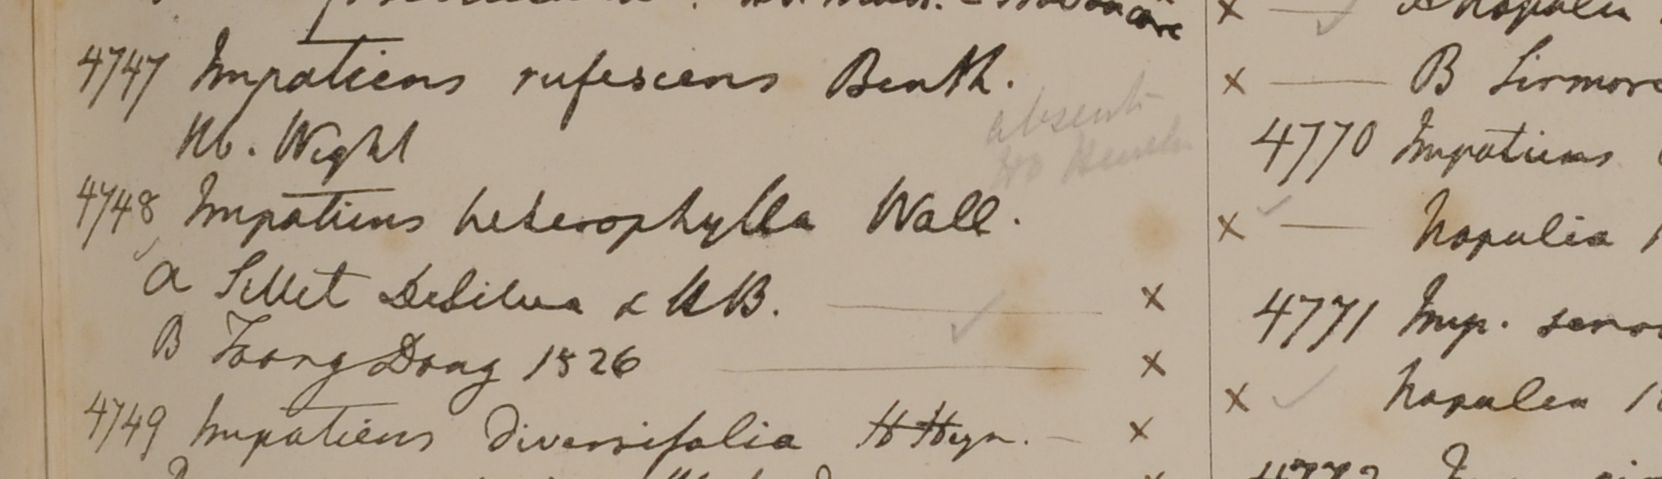 4747 Impatiens rufescens Benth.
Hb. Wight
absent
4748 Impatiens heterophylla Wall.
a Sillet DeSilva & HB.
B Toong Dong 1826
4749 Impatiens diversifolia H Heyn.
Napalia
B Sirmore
4770 Impatiens
Napalia
4771 Imp.
Napalia